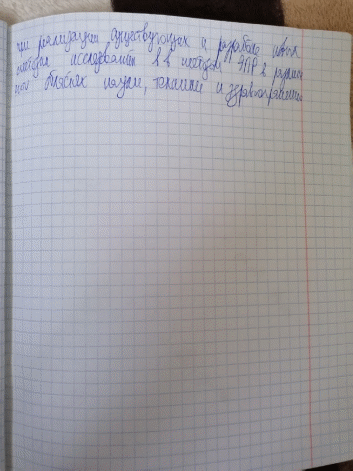 реализации существующих и разработке новых
методов исследования в методом ЭПР в
областях науки, техники и здравоохранения